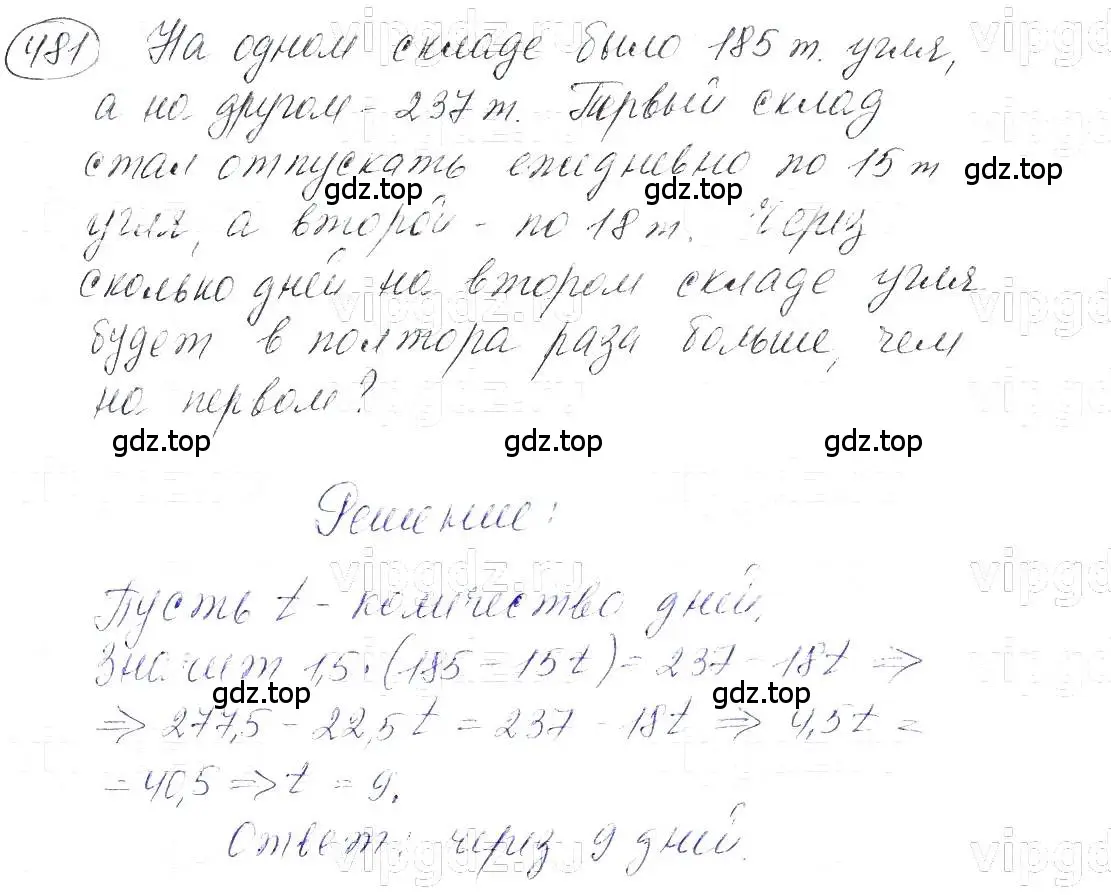 481 На одном складе было 185 т. угля,
а на другом - 237 т. Первый склад
стал отпускать ежедневно по 15 т
gdz.top gdz.top gdz.top
угля, а второй - по 18 т. Через
сколько дней на втором складе угля
будет в полтора раза больше, чем
на первом?
gdz.top gdz.top gdz.top
Решение:
Пусть t - количество дней.
Значит 1,5·(185 - 15t) = 237 - 18t ⇒
gdz.top gdz.top
⇒ 277,5 - 22,5t = 237 - 18t ⇒ 4,5t =
= 40,5 ⇒ t = 9.
Ответ: через 9 дней.